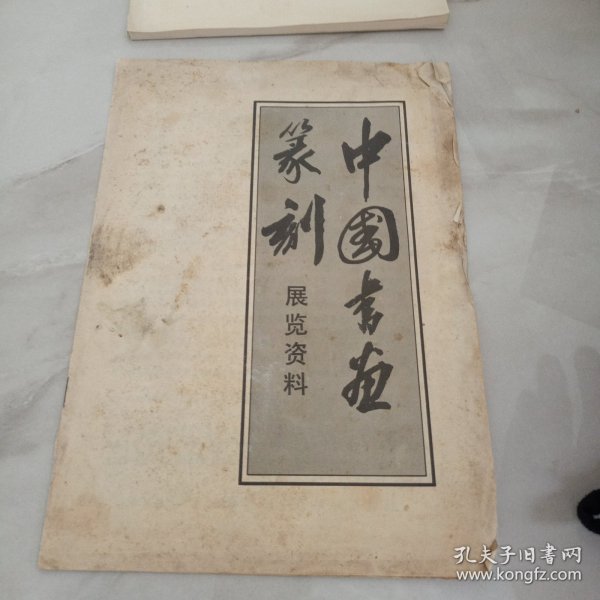 中国书画
篆刻
展览资料
孔夫子旧书网
www.kongfz.com